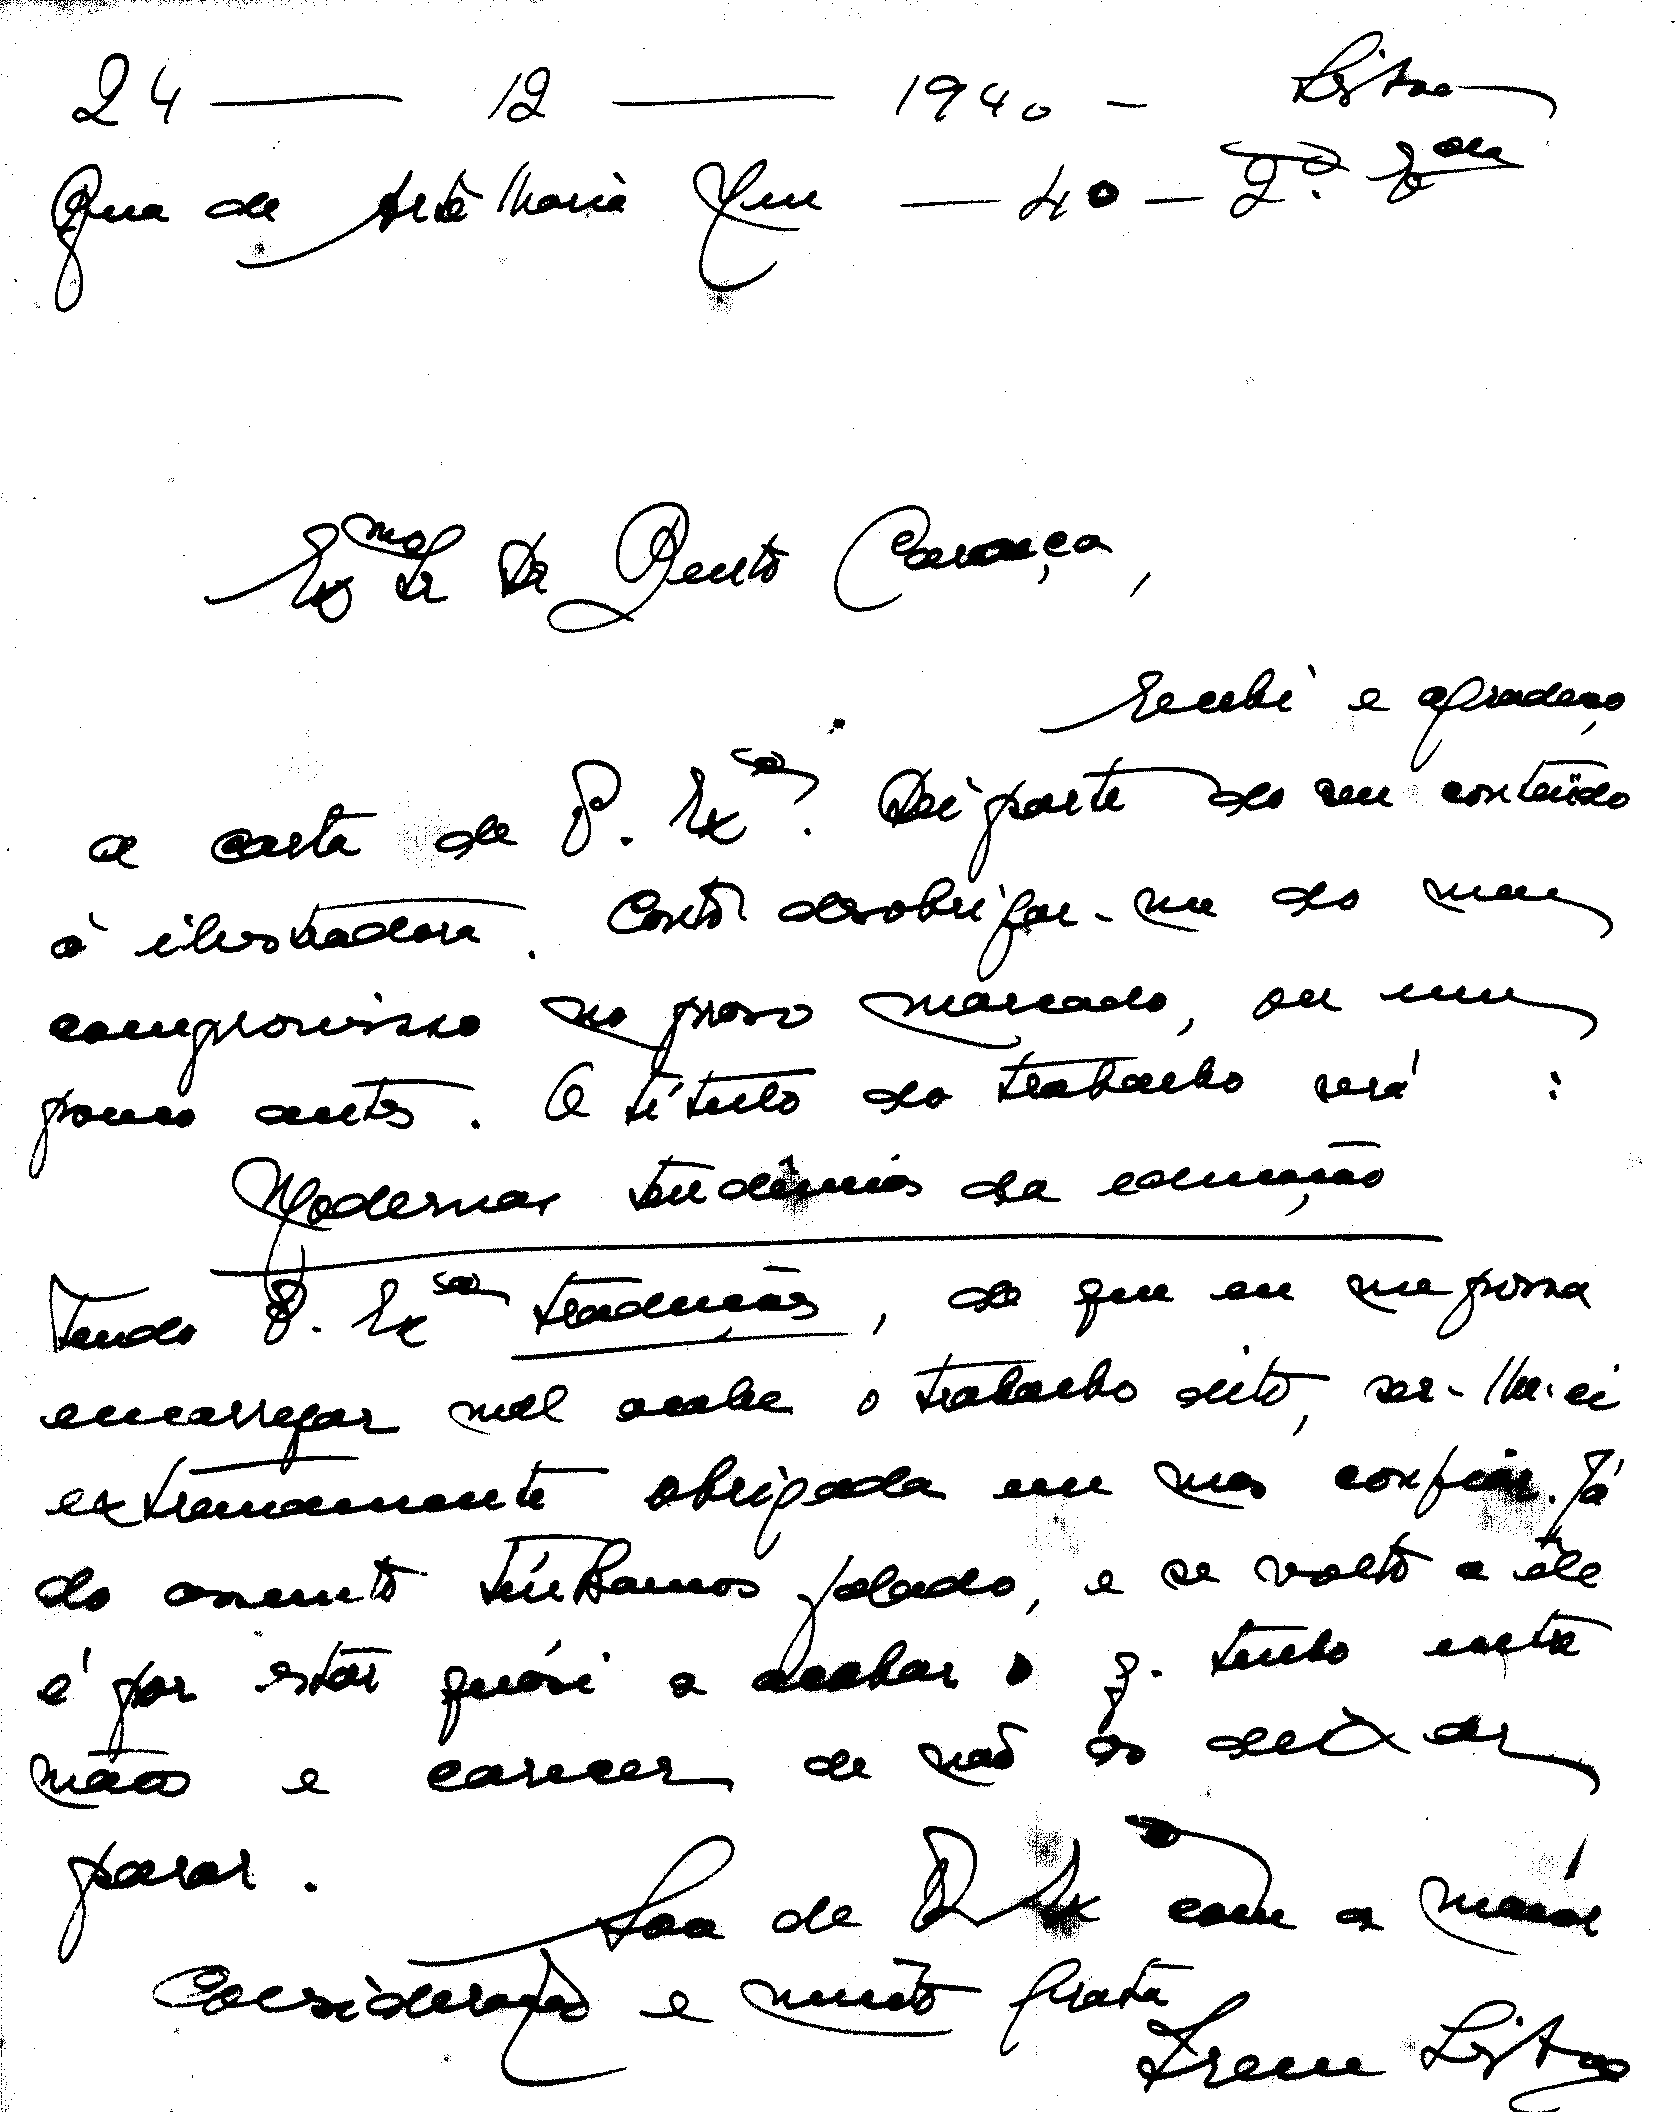 24 — 12 — 1940 - Lisboa
Rua de Artilharia Um — 40 — 2º. Edo
Exmo Sr Dr Bento Caraça,
Recebi e agradeço
a carta de V. Exa. Dei parte do seu conteúdo
à ilustradora. Conto desobrigar-me do meu
compromisso no prazo marcado, ou um
pouco antes. O título do trabalho será :
Modernas tendências da educação
Tendo V. Exa traduções, de que eu me possa
encarregar mal acabe o trabalho dito, ser-lhe-ei
extremamente obrigada em mas confiar. Já
do assunto tínhamos falado, e se volto a êle
é por estar quási a acabar o q. tenho entre
mãos e carecer de não o deixar
parar.
Sou de V. Exa com a maior
Consideração e muito grata
Irene Lisboa